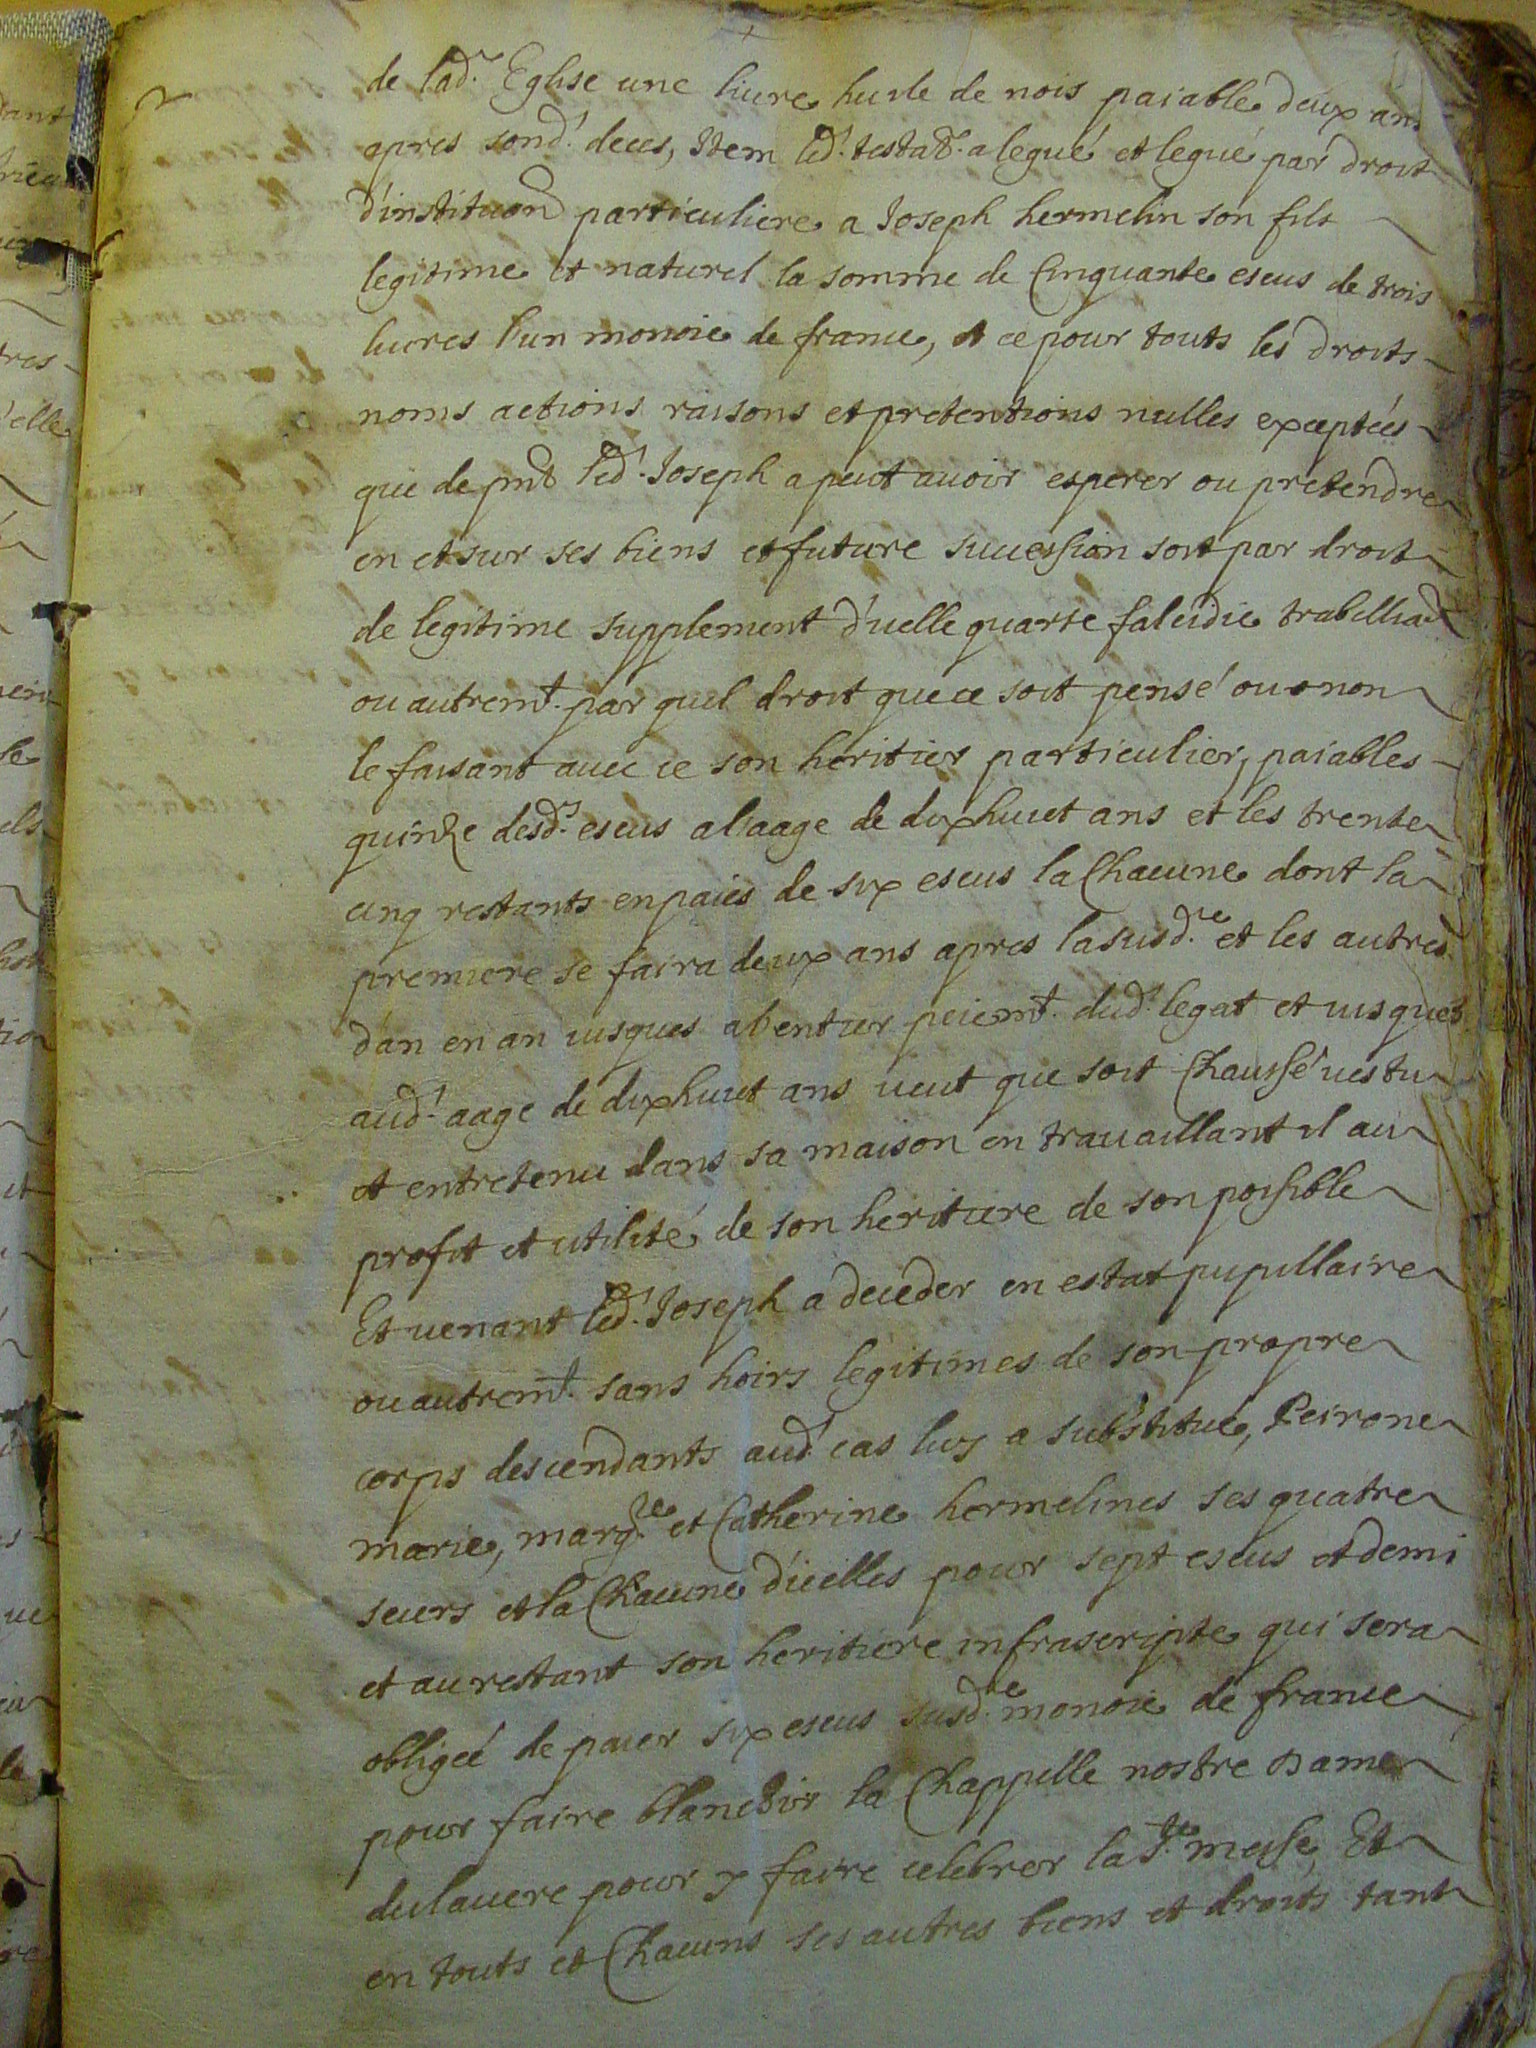 de lad.e Eglise une liure huile de nois paiable deux ans
apres sond.t deces, Item led.t testat.r a legué et legue par droit
d'instituon particuliere a Joseph hermelin son fils
legitime et naturel la somme de Cinquante escus de trois
liures l'un monoie de france, et ce pour touts les droits
noms actions raisons et pretentions nulles exceptées
que de pnt led.t Joseph a peut auoir esperer ou pretendre
en et sur ses biens et future succession soit par droit
de legitime supplement d'icelle quarte falcidie trabellia
ou autremt. par quel droit que ce soit pensé ou non
le faisant auec ce son heritier particulier, paiables
quinze desd.s escus a l'aage de dixhuict ans et les trente
cinq restants en paies de six escus la Chacune dont la
premiere se faira deux ans apres la susd.te et les autres
d'an en an iusques a l'entier peiemt. dud.t legat et iusques
aud.t aage de dixhuict ans ueut que soit Chaussé uestu
et entretenu dans sa maison en trauaillant il au
profit et utilité de son heritiere de son possible
Et uenant led.t Joseph a deceder en estat pupillaire
ou autremt. sans hoirs legitimes de son propre
corps descendants aud.t cas luy a substitué, Peirone
marie, marg.te et Catherine hermelines ses quatre
seurs et la Chacune d'icelles pour sept escus et demi
et au restant son heritiere infrascripte qui sera
obligeé de paier six escus susd.te monoie de france
pour faire blanchir la Chappelle nostre Dame
du lauere pour y faire celebrer la s.te messe, Et
en touts et Chacuns ses autres biens et droits tant